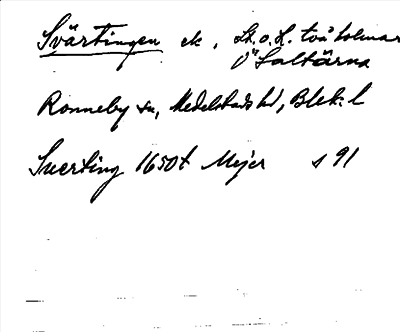 Svärtingen ek, St. o. L. två holmar
i Saltärna
Ronneby sn, Medelstads hd, Blek. l
Suerting 1650t Mejer s 91